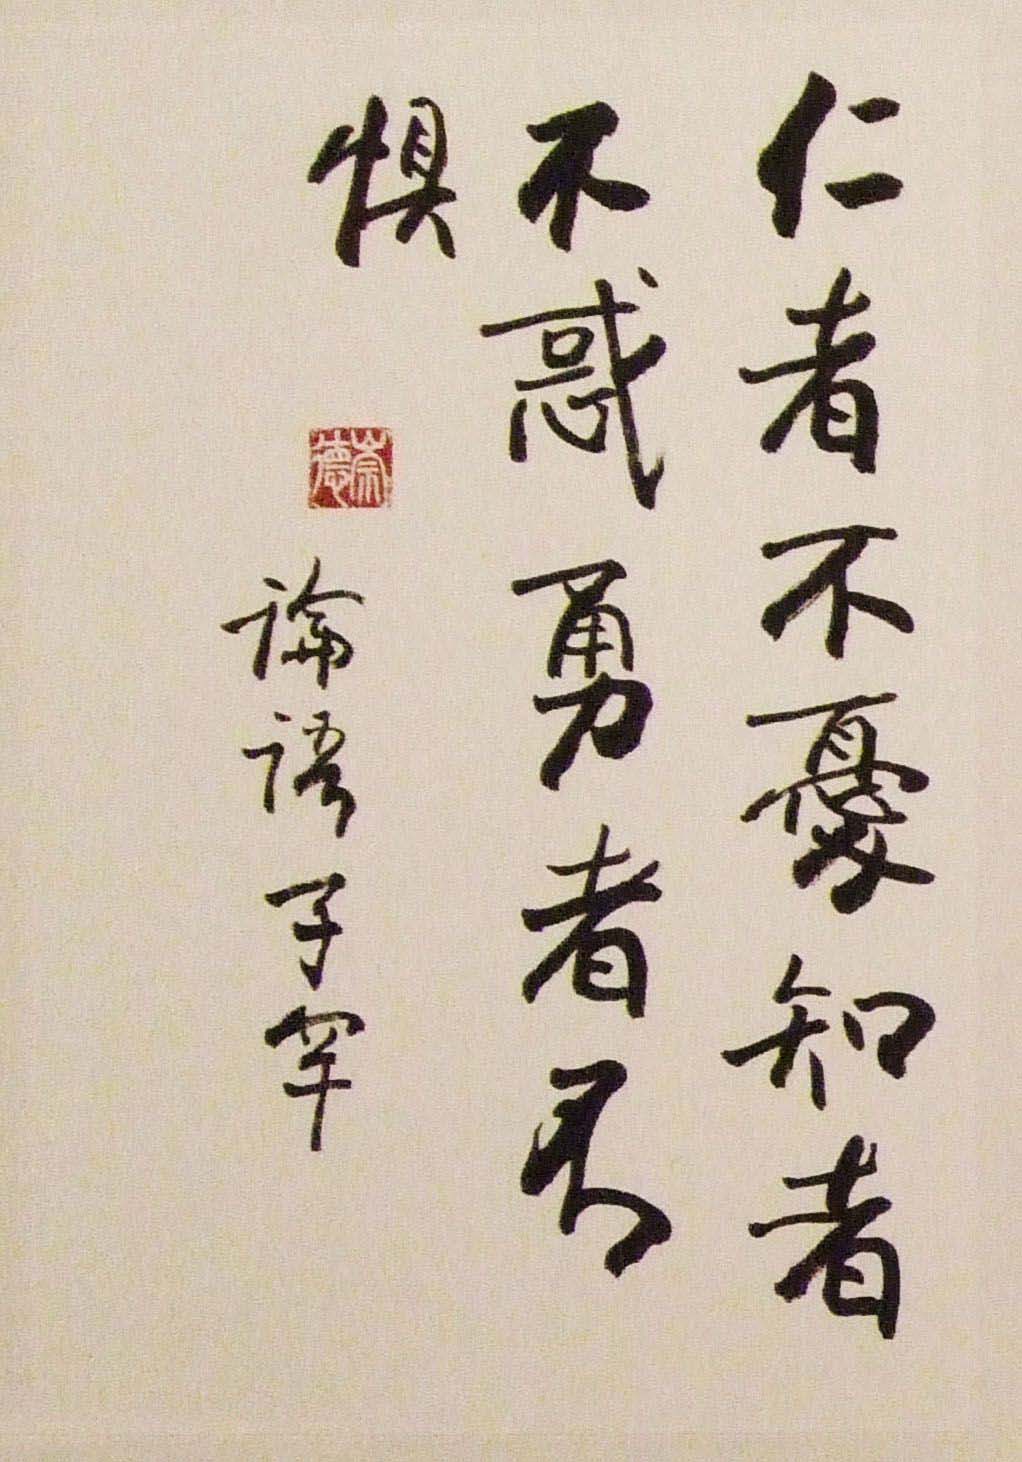 仁者不憂知者
不惑勇者不
懼
崇德
論語子罕